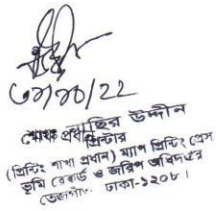 ০৩/১০/২২
শেখ নাছির উদ্দীন
প্রধান প্রিন্টার
(প্রিন্টিং শাখা প্রধান) ম্যাপ প্রিন্টিং প্রেস
ভূমি রেকর্ড ও জরিপ অধিদপ্তর
তেজগাঁও, ঢাকা-১২০৮।